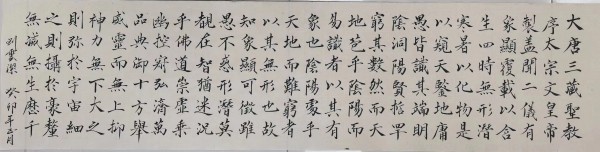 大唐三藏聖教
序太宗文皇帝
製蓋聞二儀有
象顯覆載以含
生四時無形潛
寒暑以化物是
以窺天鑒地庸
愚皆識其端明
陰洞陽賢哲罕
窮其數然而天
地苞乎陰陽而
易識者以其有
象也陰陽處乎
天地而難窮者
以其無形也故
知象顯可徵雖
愚不惑形潛莫
覩在智猶迷況
乎佛道崇虛乘
幽控寂弘濟萬
品典御十方舉
威靈而無上抑
神力無下大之
則弥於宇宙細
之則攝於豪釐
無滅無生歷千
癸卯年